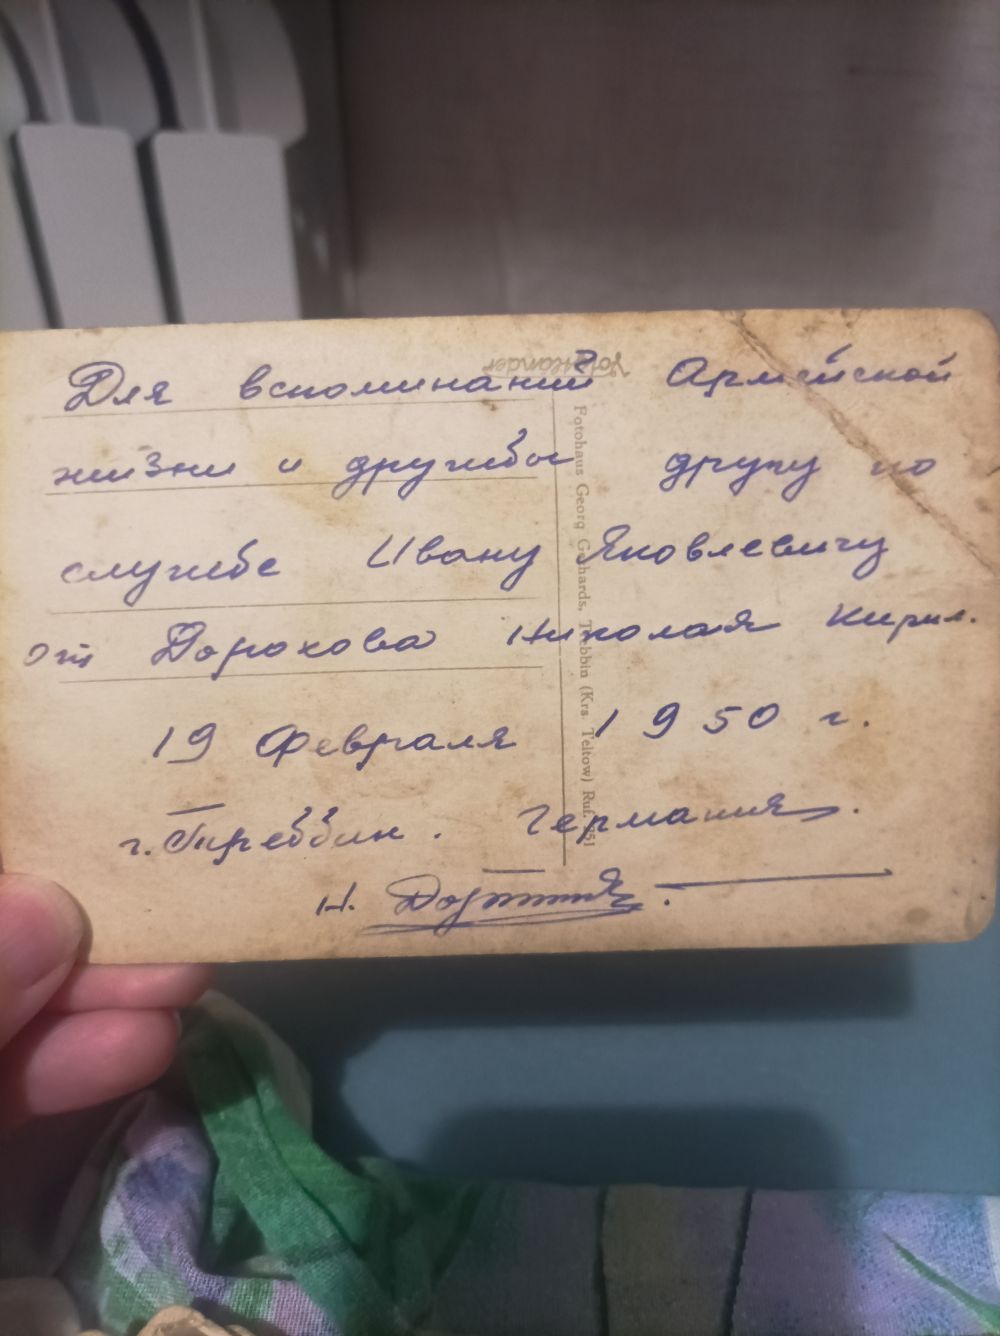 Для вспоминаний Армейской
жизни и дружбы другу по
службе Ивану Яковлевичу
от Дорохова Николая Кирил.
19 Февраля 1950 г.
г. Треббин. Германия.
Н.
Fotohaus Georg Gebhards, Trebbin (Krs. Teltow) Ruf. 351